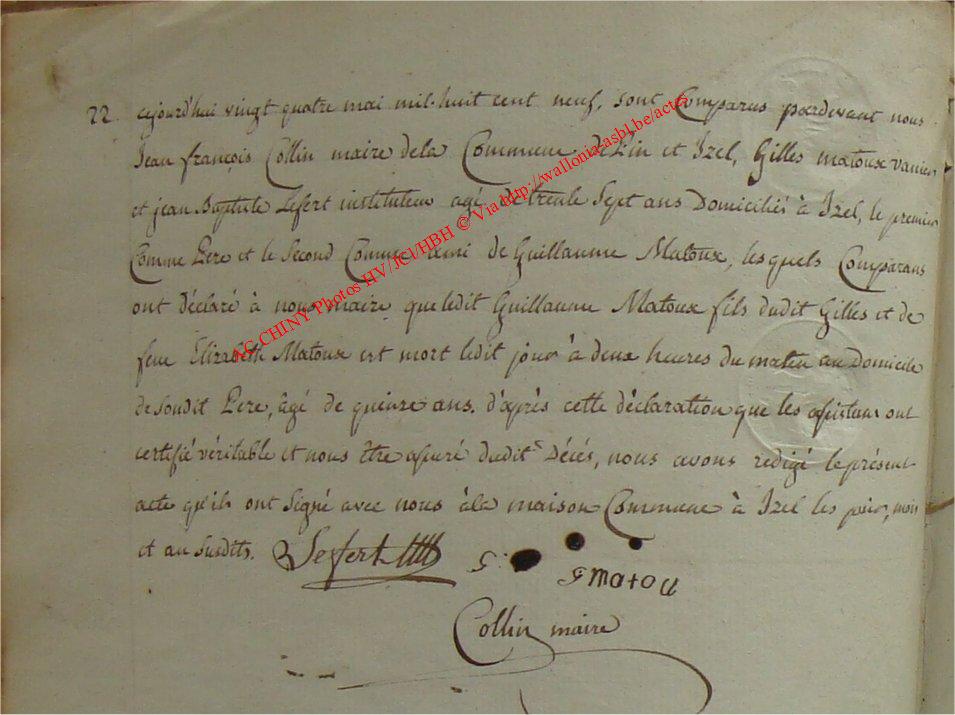 22. cejourd'hui vingt quatre mai mil-huit cent neuf, sont Comparus pardevant nous
Jean françois Collin maire dela Commune de Pin et Izel, Gilles matoux vanier
et jean Baptiste Lefert instituteur agé de trente Sept ans Domiciliés à Izel, le premier
Comme Pere et le Second Comme ami de Guillaume Matoux, lesquels Comparans
ont déclaré à nous maire que ledit Guillaume Matoux fils dudit Gilles et de
feue Elizabeth Matoux est mort ledit jour à deux heures du matin au Domicile
de Soudit Pere, âgé de quinze ans. d'après cette déclaration que les assistans ont
certifié véritable et nous être assuré dudit Décés, nous avons redigé le présent
acte qu'ils ont Signé avec nous àla maison Commune à Izel les jour, mois
et an susdits. Lefert
G
G matou
Collin maire
AC CHINY Photos HV/JCl/HBH © Via http://wallonia-asbl.be/actes